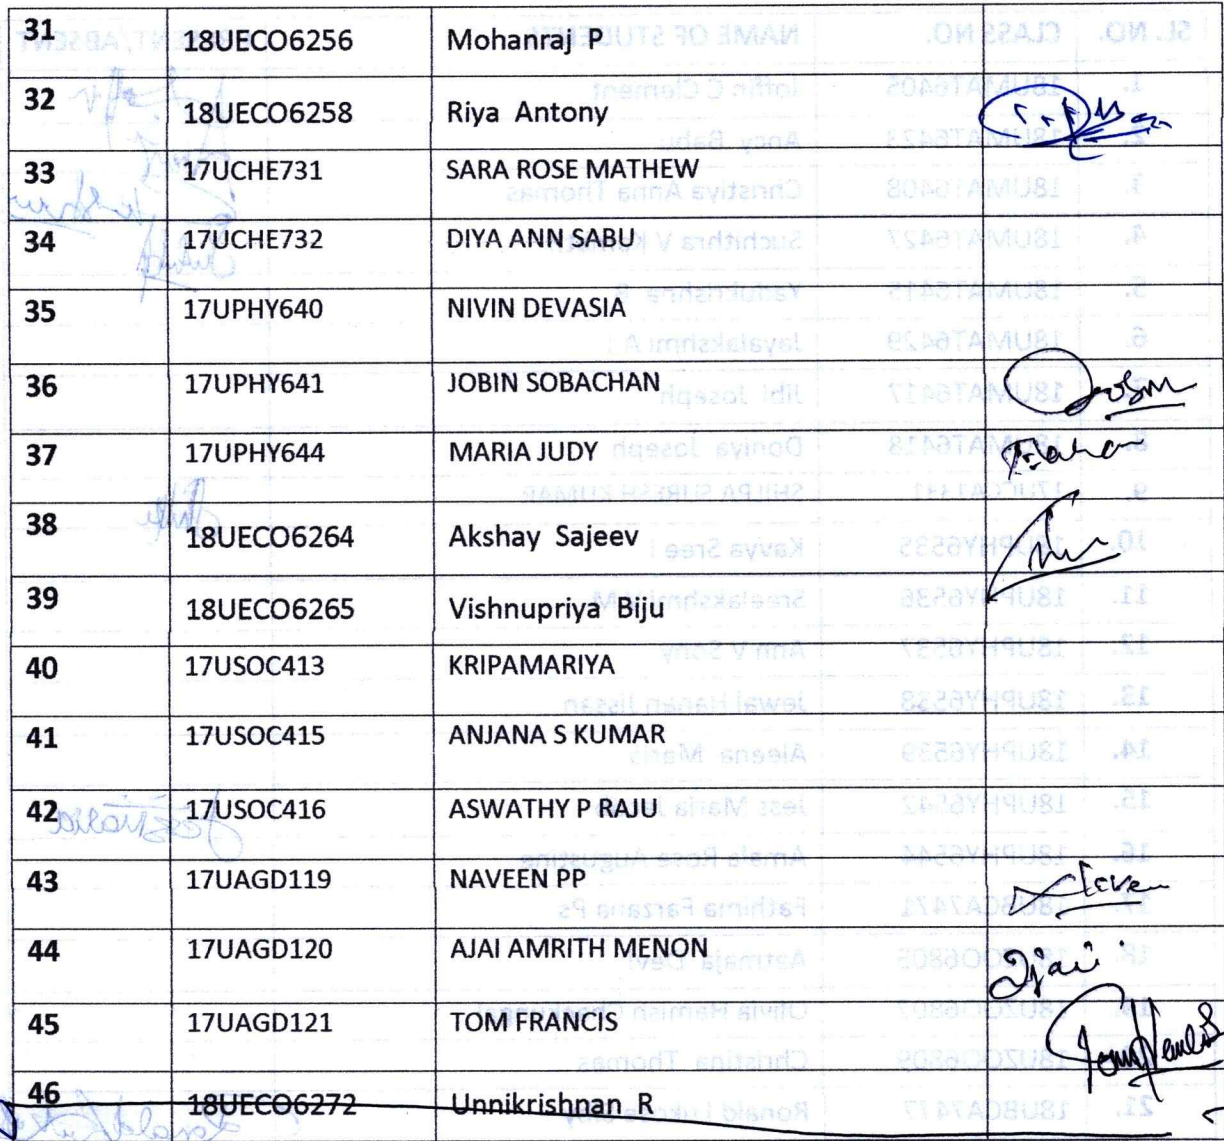 31 18UECO6256 Mohanraj P
32 18UECO6258 Riya Antony
33 17UCHE731 SARA ROSE MATHEW
34 17UCHE732 DIYA ANN SABU
35 17UPHY640 NIVIN DEVASIA
36 17UPHY641 JOBIN SOBACHAN
37 17UPHY644 MARIA JUDY Maria
38 18UECO6264 Akshay Sajeev
39 18UECO6265 Vishnupriya Biju
40 17USOC413 KRIPAMARIYA
41 17USOC415 ANJANA S KUMAR
42 17USOC416 ASWATHY P RAJU
43 17UAGD119 NAVEEN PP
44 17UAGD120 AJAI AMRITH MENON Ajai
45 17UAGD121 TOM FRANCIS
46 18UECO6272 Unnikrishnan R